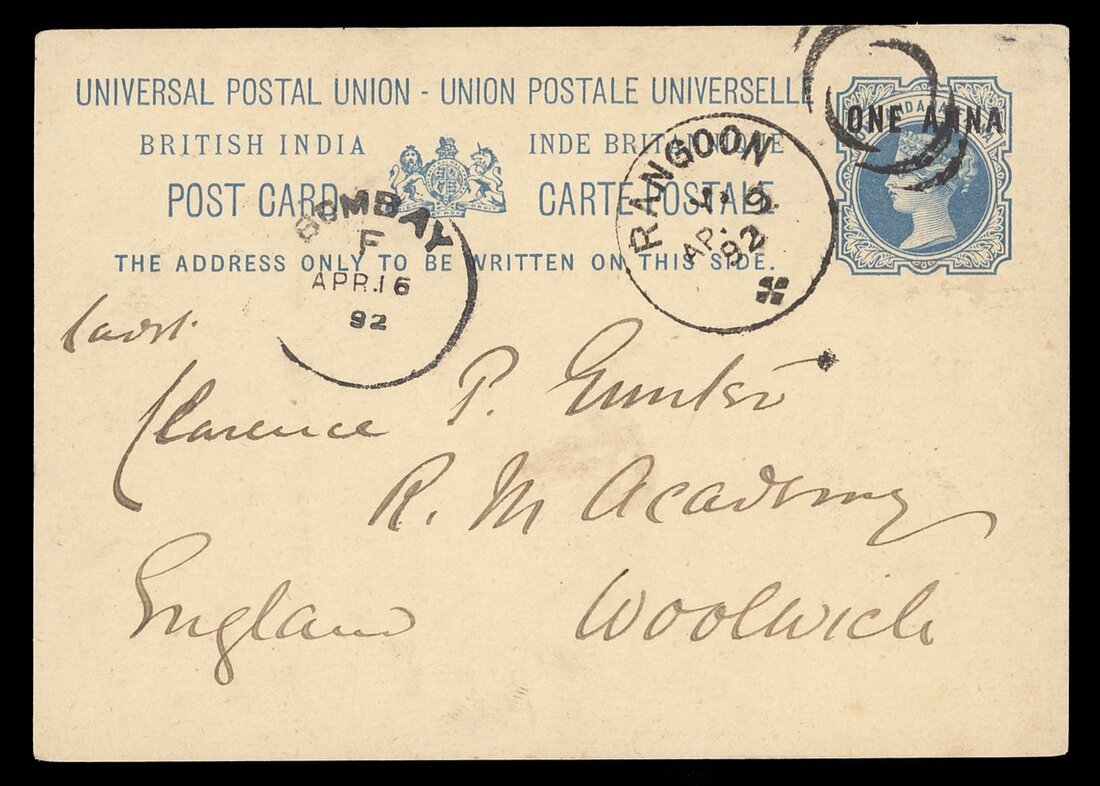 UNIVERSAL POSTAL UNION - UNION POSTALE UNIVERSELLE
BRITISH INDIA INDE BRITANNIQUE
POST CARD CARTE POSTALE
THE ADDRESS ONLY TO BE WRITTEN ON THIS SIDE.
ONE ANNA
RANGOON
AP. 9
92
BOMBAY
F
APR.16
92
Clarence P.
R. M Academy
Woolwich
England